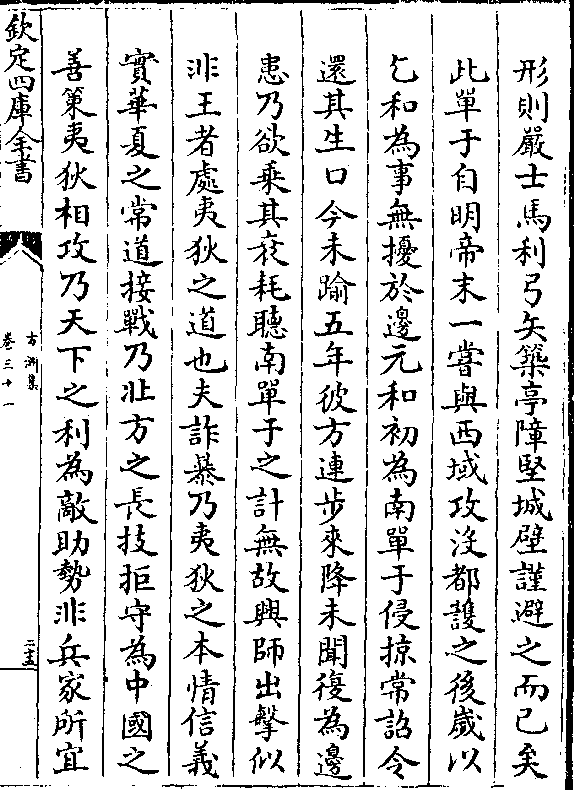 形則嚴士馬利弓矢築亭障堅城壁謹避之而已矣
此單于自明帝末一嘗與西域攻没都䕶之後嵗以
乞和為事無擾於邊元和初為南單于侵掠常詔令
還其生口今未踰五年彼方連步來降未聞復為邊
患乃欲乗其衰耗聽南單于之計無故興師出擊似
非王者處夷狄之道也夫詐暴乃夷狄之本情信義
實華夏之常道接戰乃北方之長技拒守為中國之
善策夷狄相攻乃天下之利為敵助勢非兵家所宜
欽定四庫全書
卷三十一
二十五